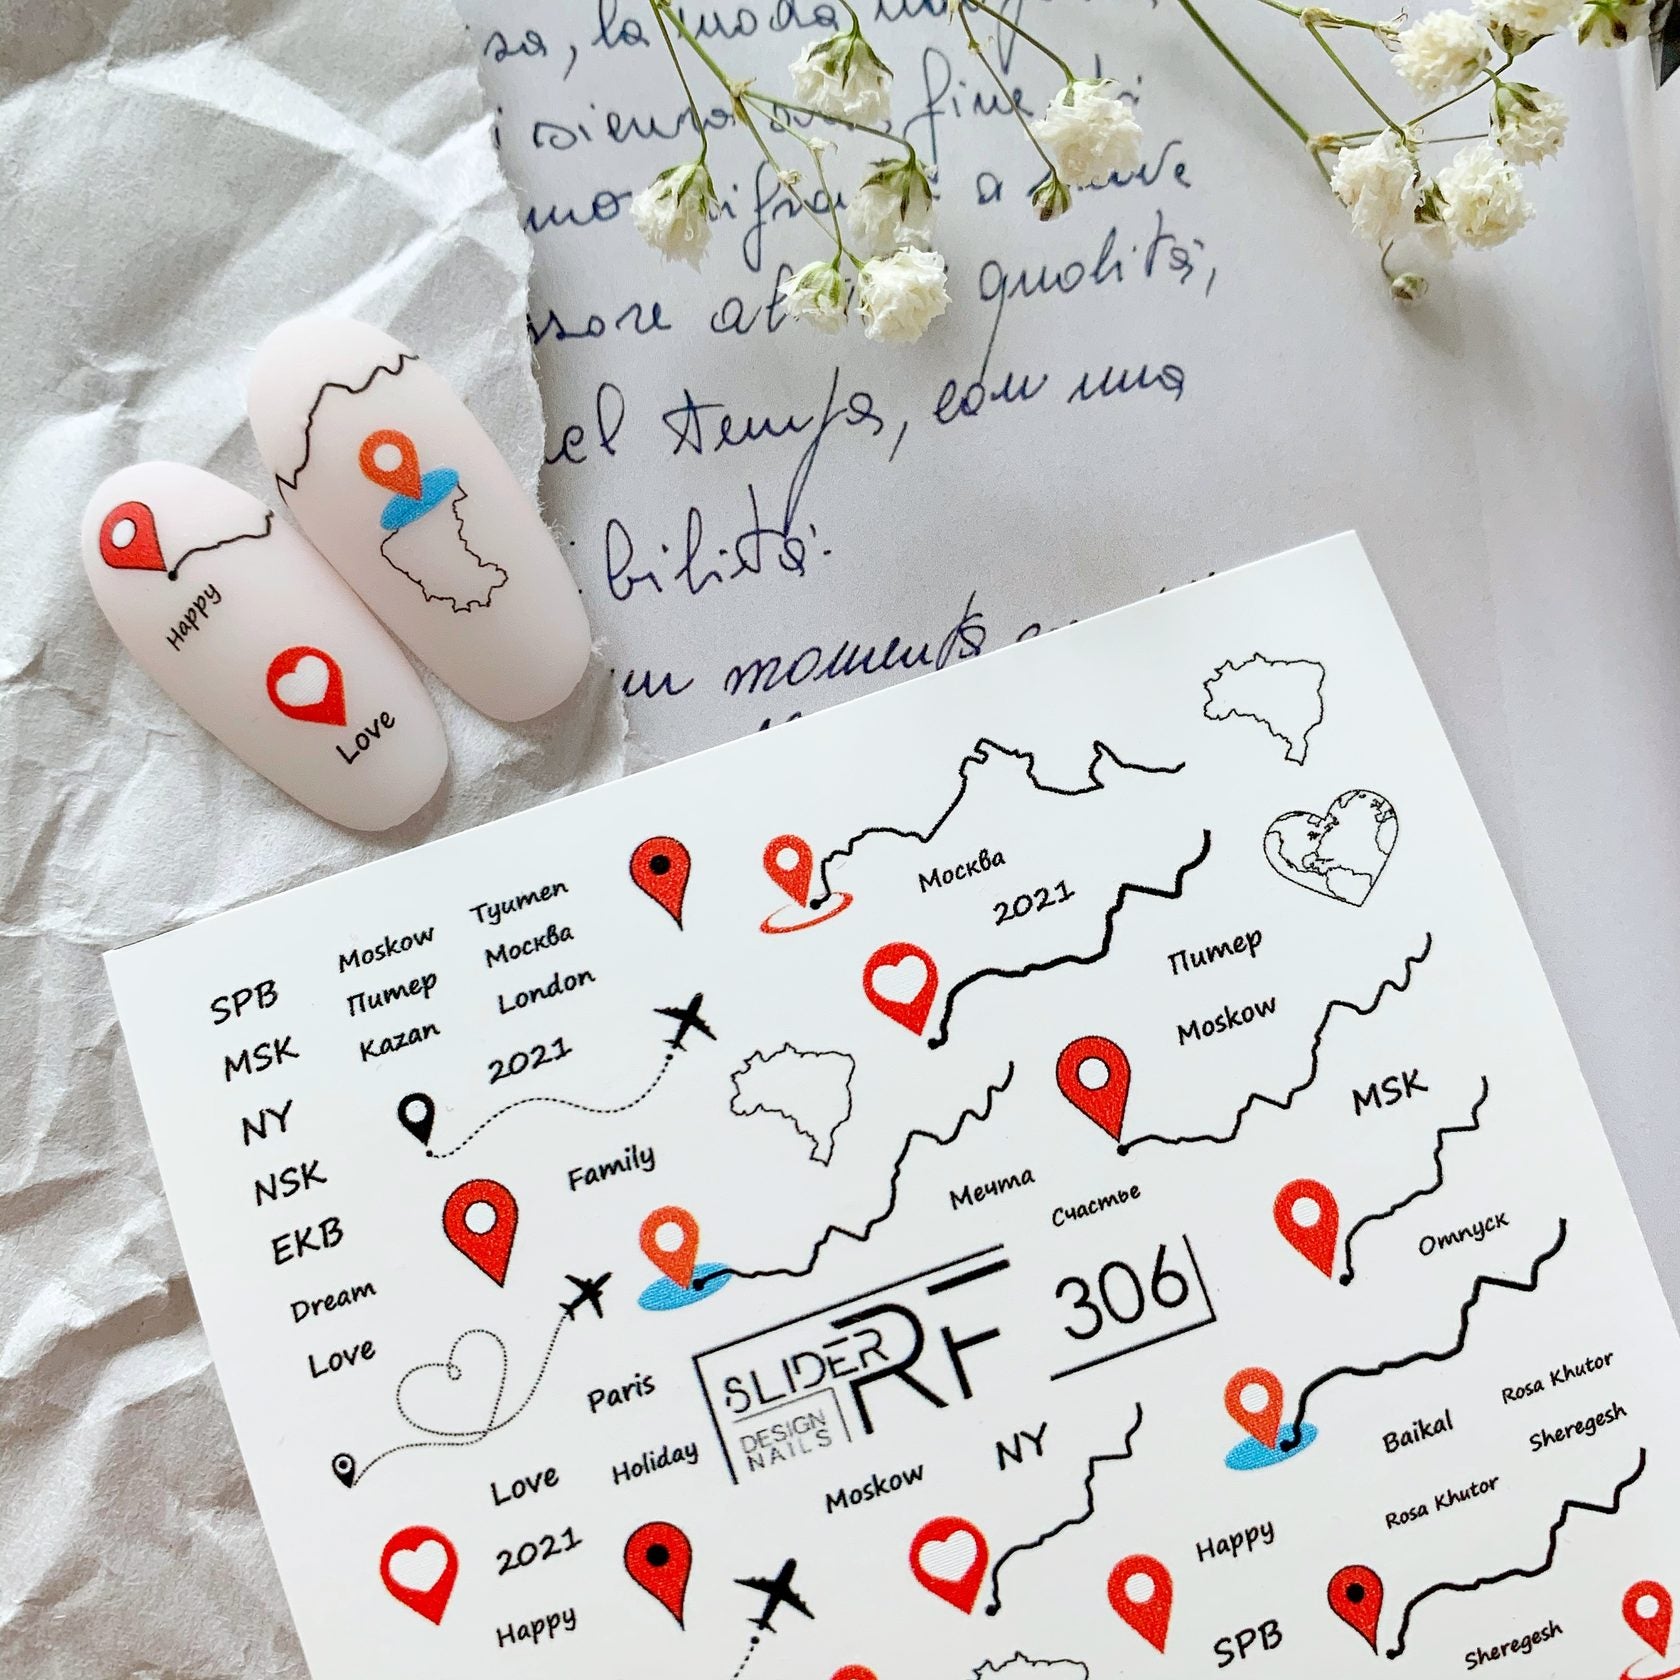 sa, la moda
fine
a
qualità,
el tempo, con una
bilità.
un momento
Happy
Love
SPB
MSK
NY
NSK
EKB
Dream
Love
Moskow
Питер
Kazan
Tyumen
Москва
London
2021
Family
Москва
2021
Питер
Moskow
MSK
Мечта
Счастье
Отпуск
SLIDER RF 306
DESIGN
NAILS
Paris
Holiday
Love
2021
Happy
Moskow
NY
Baikal
Rosa Khutor
Sheregesh
Rosa Khutor
Happy
SPB
Sheregesh